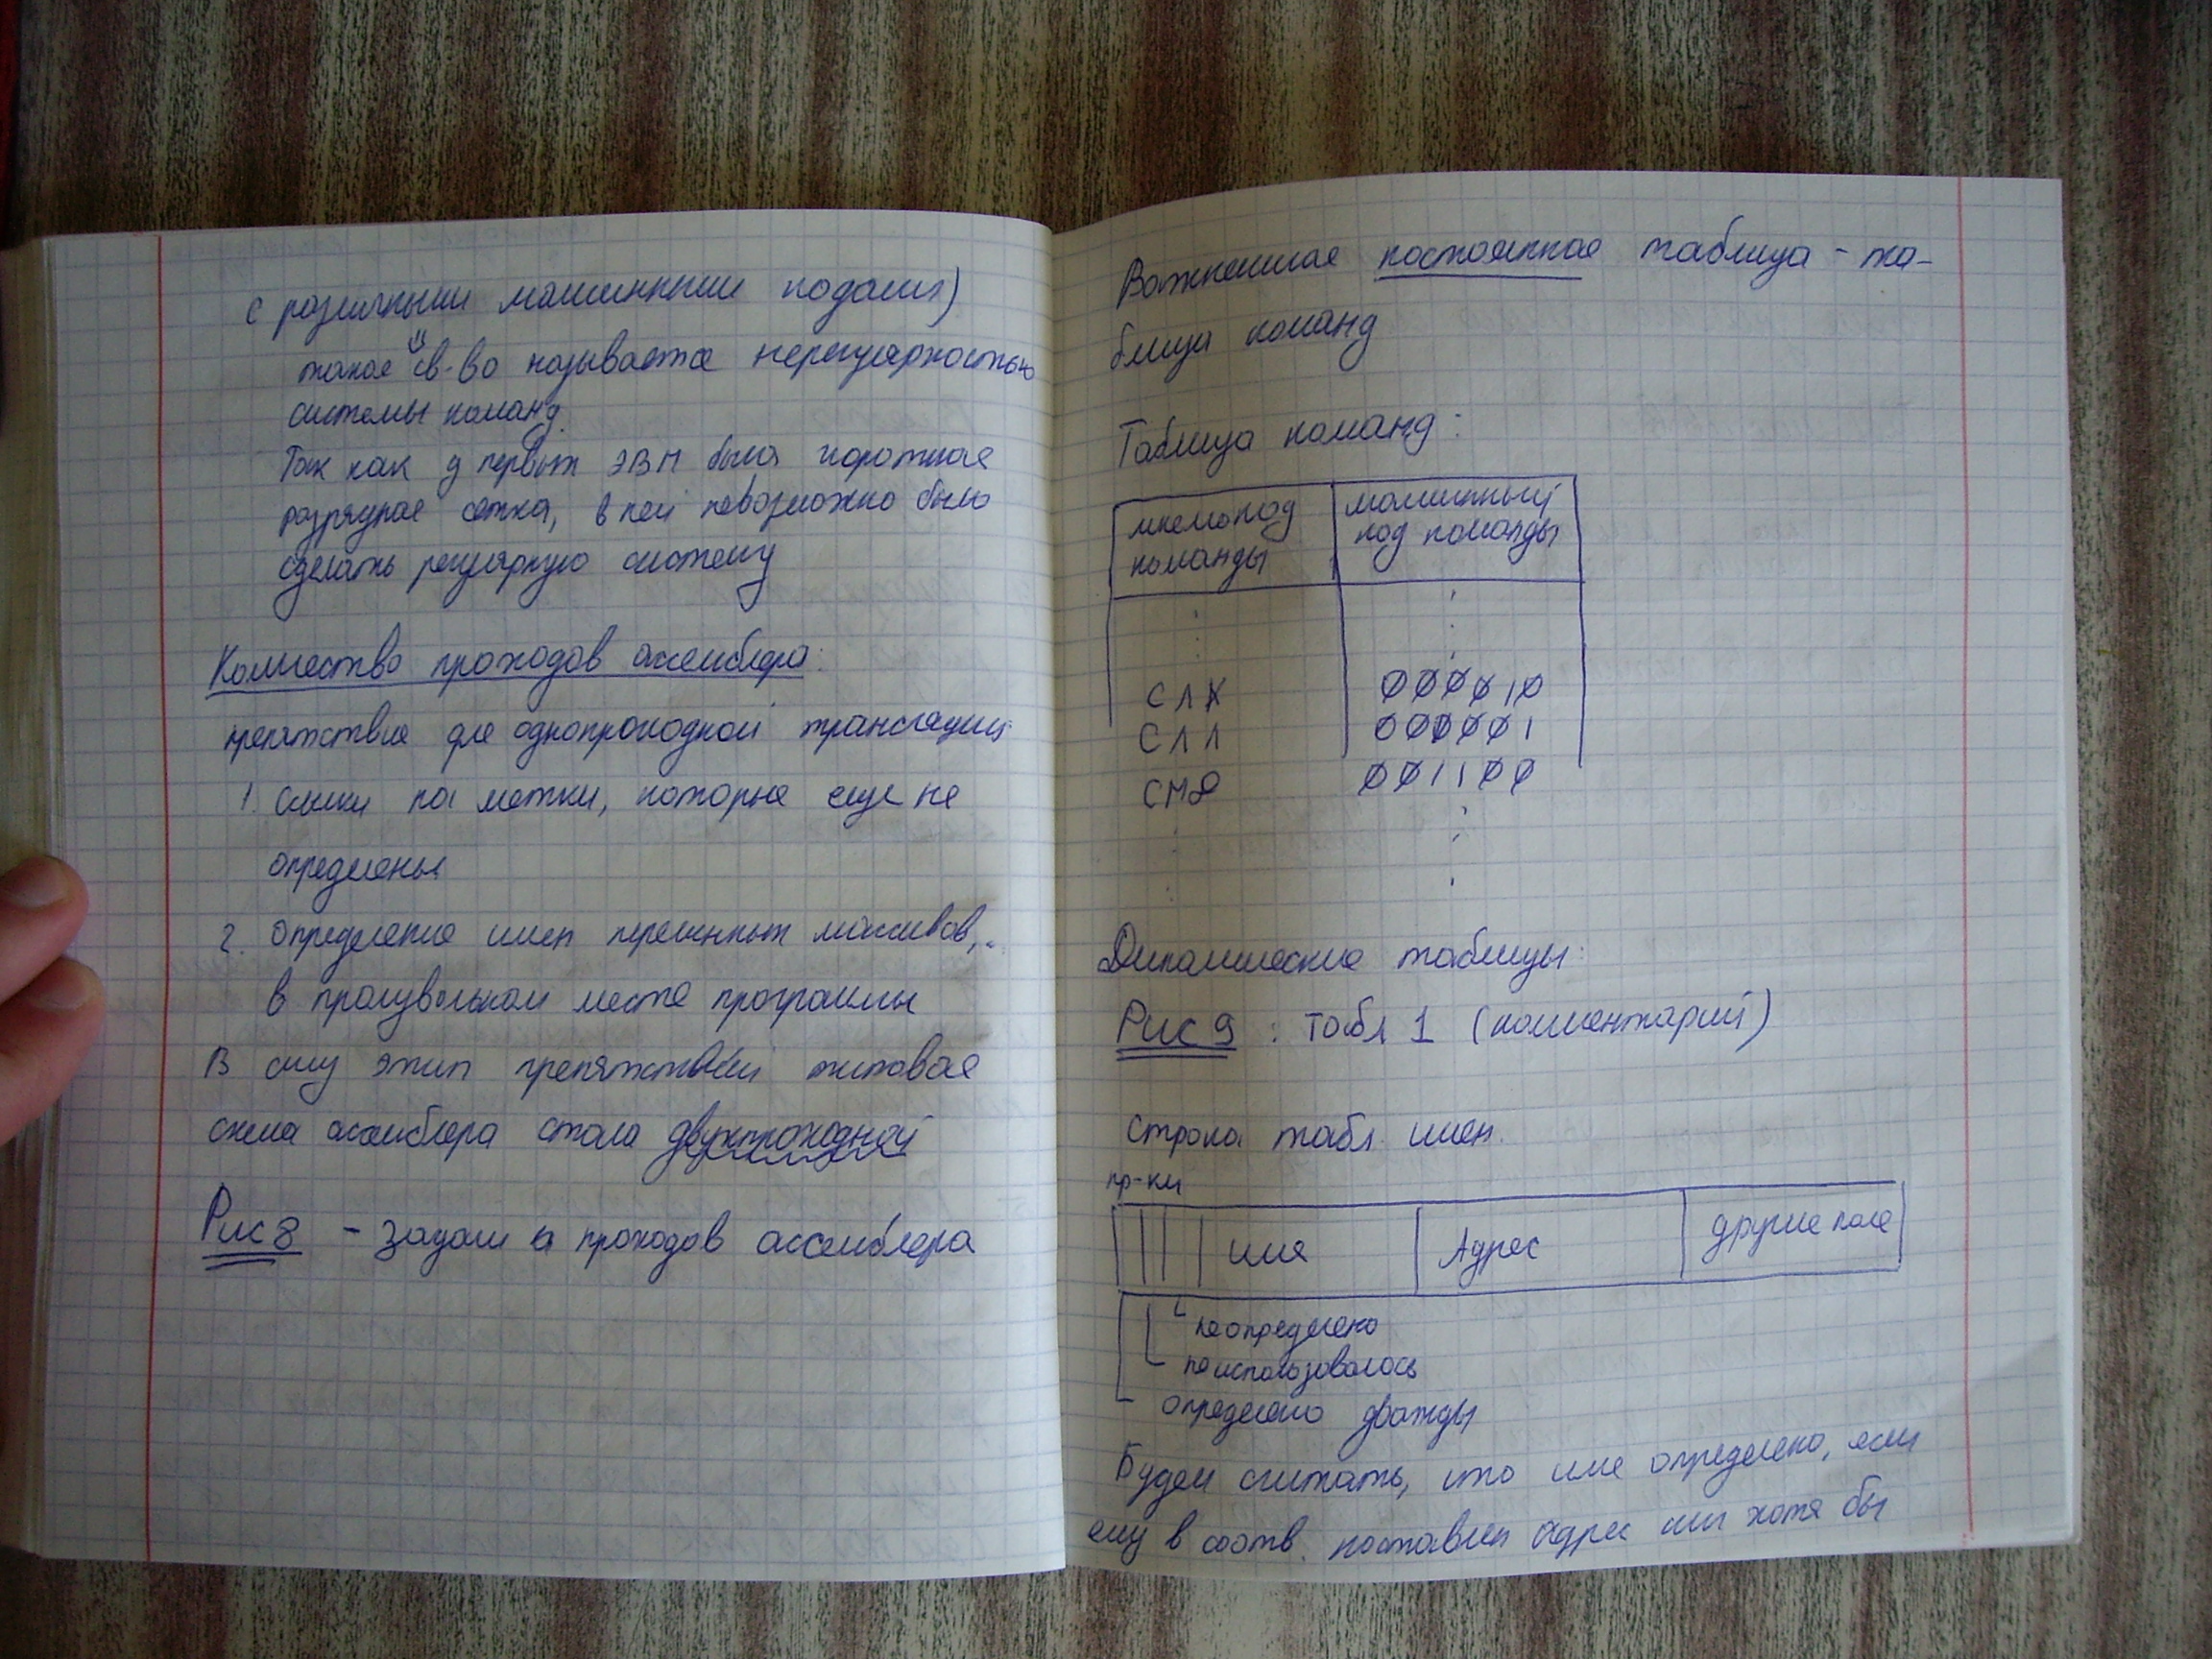 с различными машинными кодами)
такое св-во называется нерегулярностью
системы команд.
Так как у первых ЭВМ была короткая
разрядная сетка, в ней невозможно было
сделать регулярную систему
Количество проходов ассемблера:
препятствие для однопроходной трансляции:
1. ссылки на метки, которые еще не
определены
2. определение имен переменных массивов,..
в произвольном месте программы
В силу этих препятствий типовая
схема ассемблера стала двухпроходной
Рис 8 - задачи проходов ассемблера
Важнейшая постоянная таблица - та-
блица команд
Таблица команд:
мнемокод команды | машинный код команды
СЛК 000010
СЛЛ 000001
СМФ 001100
Динамические таблицы:
Рис 9 : табл 1 (комментарий)
строка табл. имен.
пр-ки
имя | Адрес | другие поля
не определено
не использовалось
определено дважды
Будем считать, что имя определено, если
ему в соотв. поставлен адрес или хотя бы